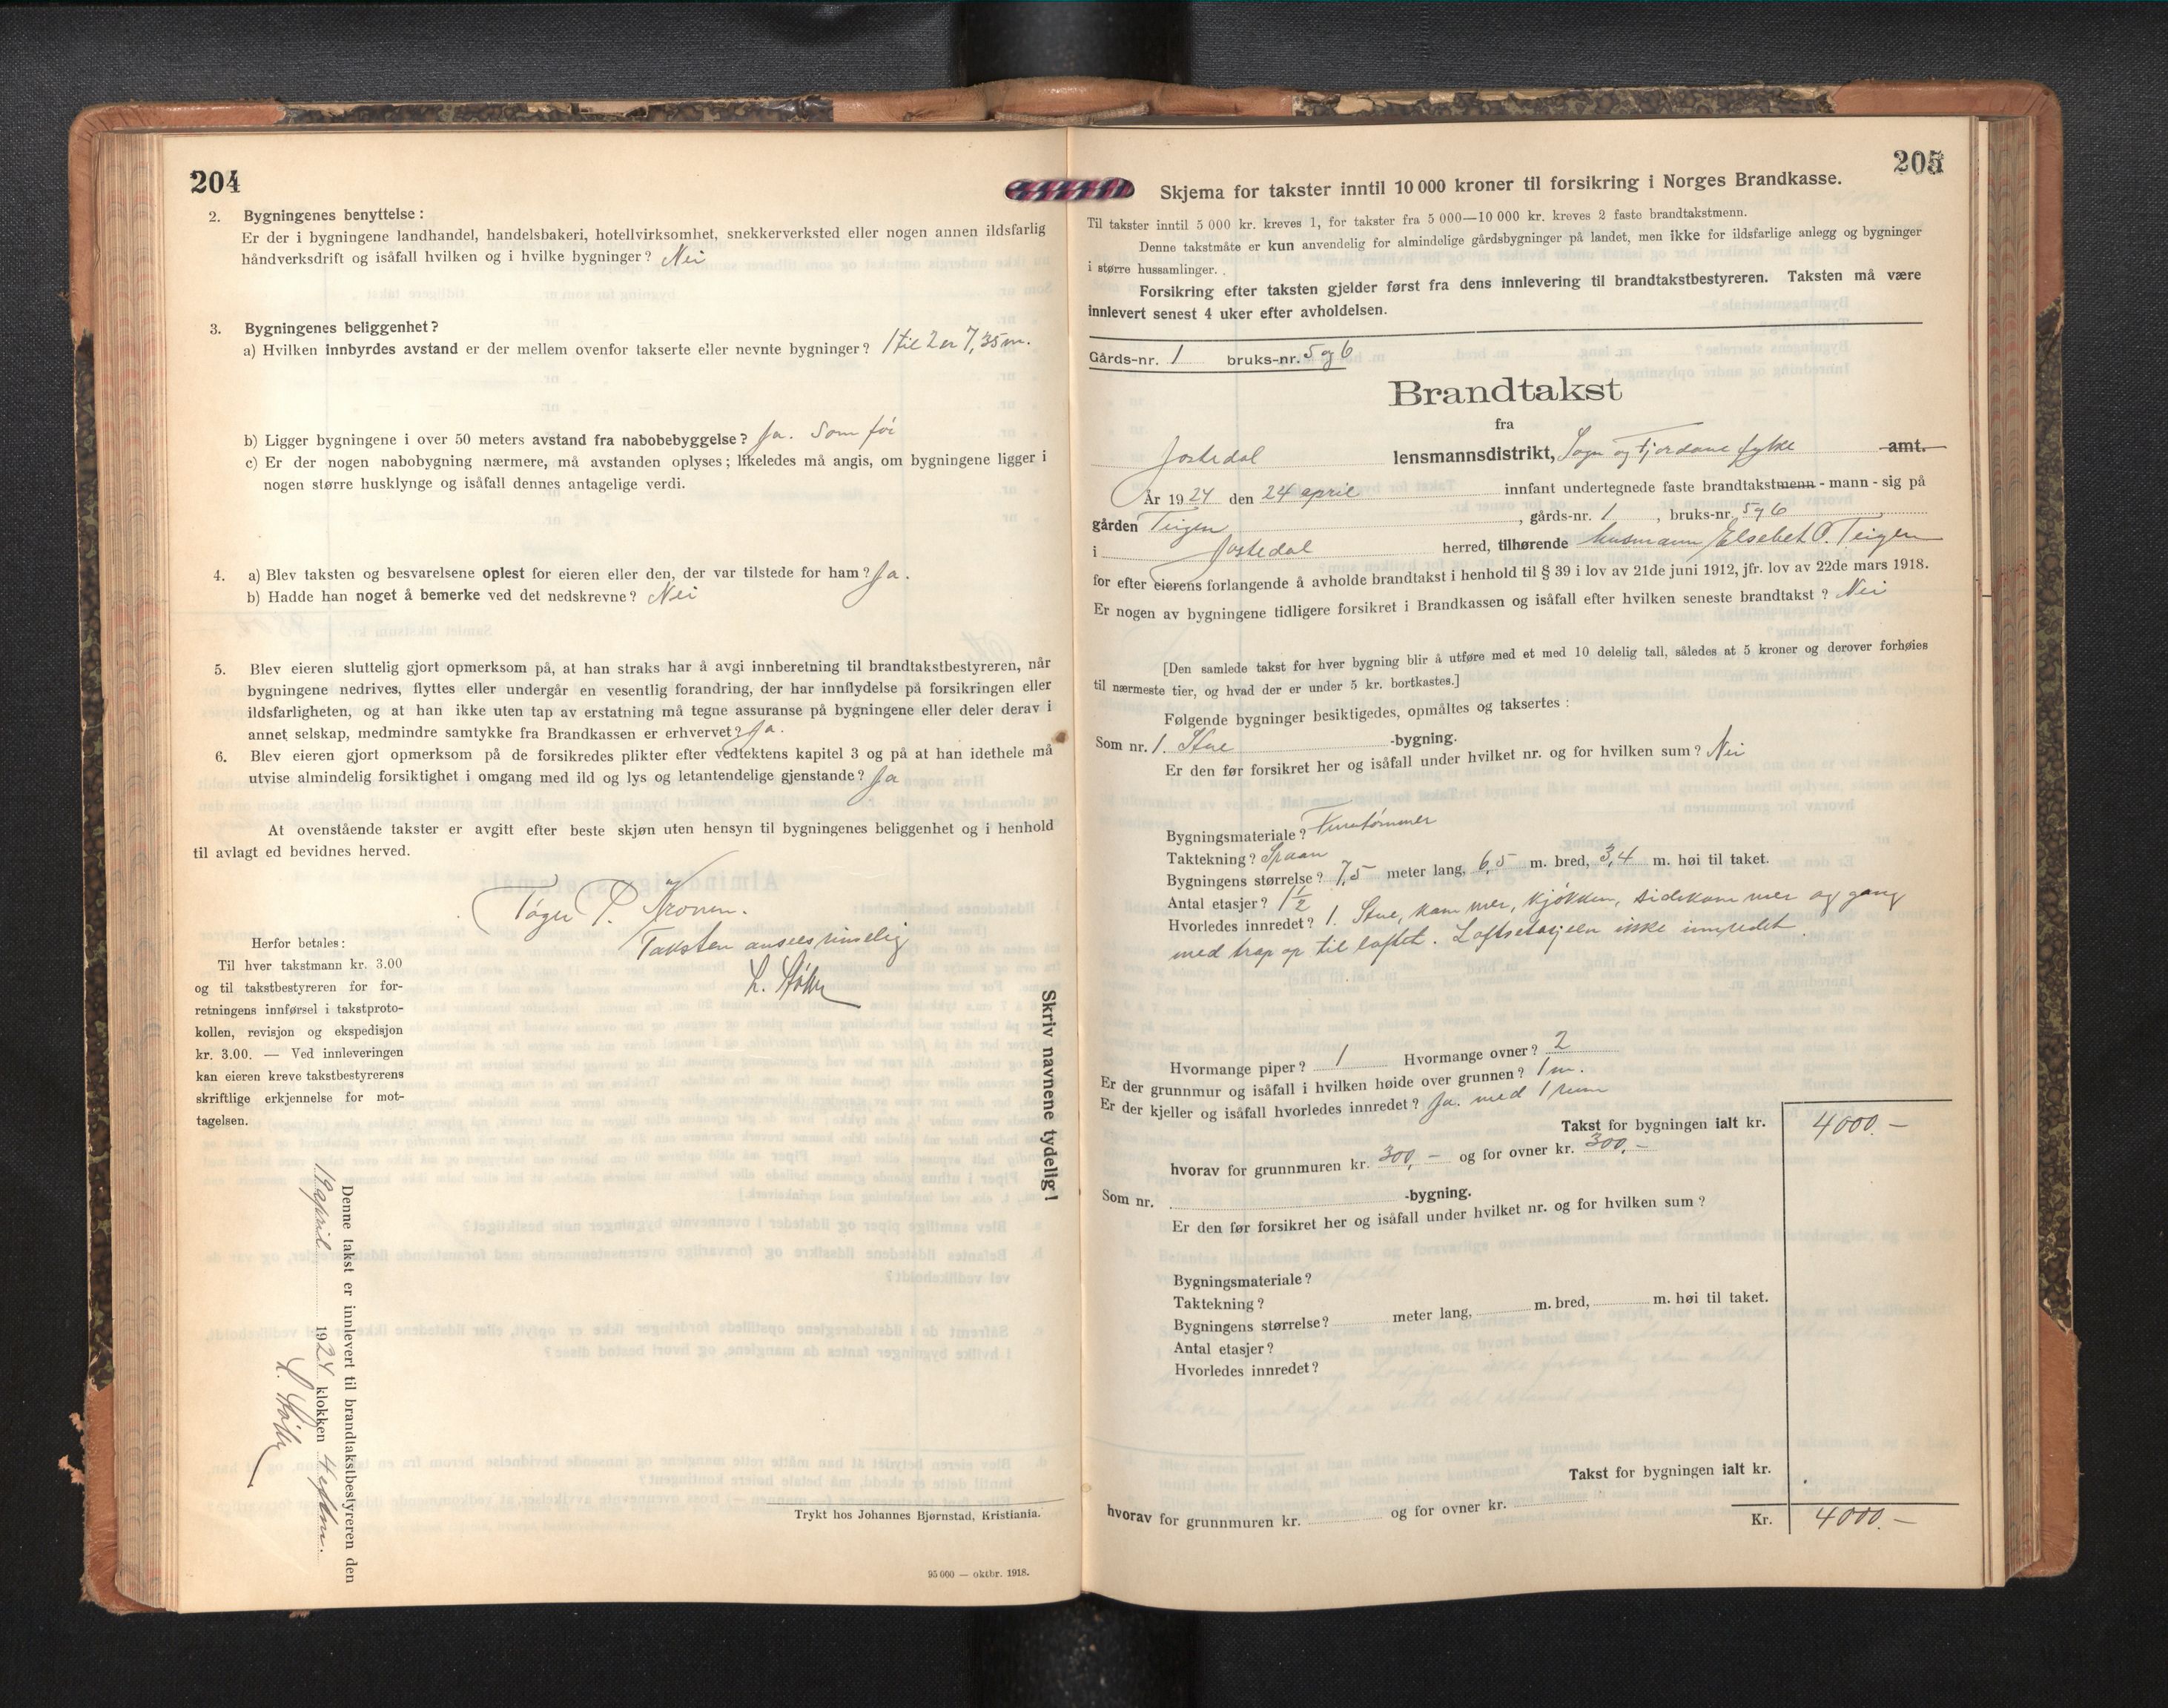 204
2. Bygningenes benyttelse:
Er der i bygningene landhandel, handelsbakeri, hotellvirksomhet, snekkerverksted eller nogen annen ildsfarlig
håndverksdrift og isåfall hvilken og i hvilke bygninger? Nei
3. Bygningenes beliggenhet?
a) Hvilken innbyrdes avstand er der mellem ovenfor takserte eller nevnte bygninger? 1 til 2 er 7,35 m.
b) Ligger bygningene i over 50 meters avstand fra nabobebyggelse? Ja. Som før
c) Er der nogen nabobygning nærmere, må avstanden oplyses; likeledes må angis, om bygningene ligger i
nogen større husklynge og isåfall dennes antagelige verdi.
4. a) Blev taksten og besvarelsene oplest for eieren eller den, der var tilstede for ham? Ja.
b) Hadde han noget å bemerke ved det nedskrevne? Nei
5. Blev eieren sluttelig gjort opmerksom på, at han straks har å avgi innberetning til brandtakstbestyreren, når
bygningene nedrives, flyttes eller undergår en vesentlig forandring, der har innflydelse på forsikringen eller
ildsfarligheten, og at han ikke uten tap av erstatning må tegne assuranse på bygningene eller deler derav i
annet selskap, medmindre samtykke fra Brandkassen er erhvervet? Ja.
6. Blev eieren gjort opmerksom på de forsikredes plikter efter vedtektens kapitel 3 og på at han idethele må
utvise almindelig forsiktighet i omgang med ild og lys og letantendelige gjenstande? Ja
At ovenstående takster er avgitt efter beste skjøn uten hensyn til bygningenes beliggenhet og i henhold
til avlagt ed bevidnes herved.
Tøger P. Kronen.
Taksten ansees rimelig
Herfor betales:
Til hver takstmann kr. 3.00
og til takstbestyreren for for-
retningens innførsel i takstproto-
kollen, revisjon og ekspedisjon
kr. 3.00. — Ved innleveringen
kan eieren kreve takstbestyrerens
skriftlige erkjennelse for mot-
tagelsen.
Skriv navnene tydelig!
Denne takst er innlevert til brandtakstbestyreren den
april 1924 klokken 4 eftm.
Trykt hos Johannes Bjørnstad, Kristiania.
95 000 — oktbr. 1918.
205
Skjema for takster inntil 10 000 kroner til forsikring i Norges Brandkasse.
Til takster inntil 5 000 kr. kreves 1, for takster fra 5 000—10 000 kr. kreves 2 faste brandtakstmenn.
Denne takstmåte er kun anvendelig for almindelige gårdsbygninger på landet, men ikke for ildsfarlige anlegg og bygninger
i større hussamlinger.
Forsikring efter taksten gjelder først fra dens innlevering til brandtakstbestyreren. Taksten må være
innlevert senest 4 uker efter avholdelsen.
Gårds-nr. 1 bruks-nr. 5 og 6
Brandtakst
fra
Jostedal lensmannsdistrikt, Sogn og Fjordane fylke amt.
År 1924 den 24 april innfant undertegnede faste brandtakstmenn - mann - sig på
gården Teigen, gårds-nr. 1, bruks-nr. 5 og 6
i Jostedal herred, tilhørende husmann Elsebet P. Teigen
for efter eierens forlangende å avholde brandtakst i henhold til § 39 i lov av 21de juni 1912, jfr. lov av 22de mars 1918.
Er nogen av bygningene tidligere forsikret i Brandkassen og isåfall efter hvilken seneste brandtakst? Nei
[Den samlede takst for hver bygning blir å utføre med et med 10 delelig tall, således at 5 kroner og derover forhøies
til nærmeste tier, og hvad der er under 5 kr. bortkastes.]
Følgende bygninger besiktigedes, opmåltes og taksertes:
Som nr. 1. Stue -bygning.
Er den før forsikret her og isåfall under hvilket nr. og for hvilken sum? Nei
Bygningsmateriale? Furutømmer
Taktekning? Spaan
Bygningens størrelse? 7,5 meter lang, 6,5 m. bred, 3,4 m. høi til taket.
Antal etasjer? 1 1/2
Hvorledes innredet? 1. Stue, kammer, kjøkken, sidekammer og gang
med trap op til loftet. Loftsetasjeen ikke innredet.
Hvormange piper? 1 Hvormange ovner? 2
Er der grunnmur og isåfall i hvilken høide over grunnen? 1 m.
Er der kjeller og isåfall hvorledes innredet? Ja. med 1 rum
Takst for bygningen ialt kr. 4000.—
hvorav for grunnmuren kr. 300,— og for ovner kr. 300,—
Som nr. -bygning.
Er den før forsikret her og isåfall under hvilket nr. og for hvilken sum?
Bygningsmateriale?
Taktekning?
Bygningens størrelse? meter lang, m. bred, m. høi til taket.
Antal etasjer?
Hvorledes innredet?
Takst for bygningen ialt kr.
hvorav for grunnmuren kr. og for ovner kr.
Kr. 4000.—